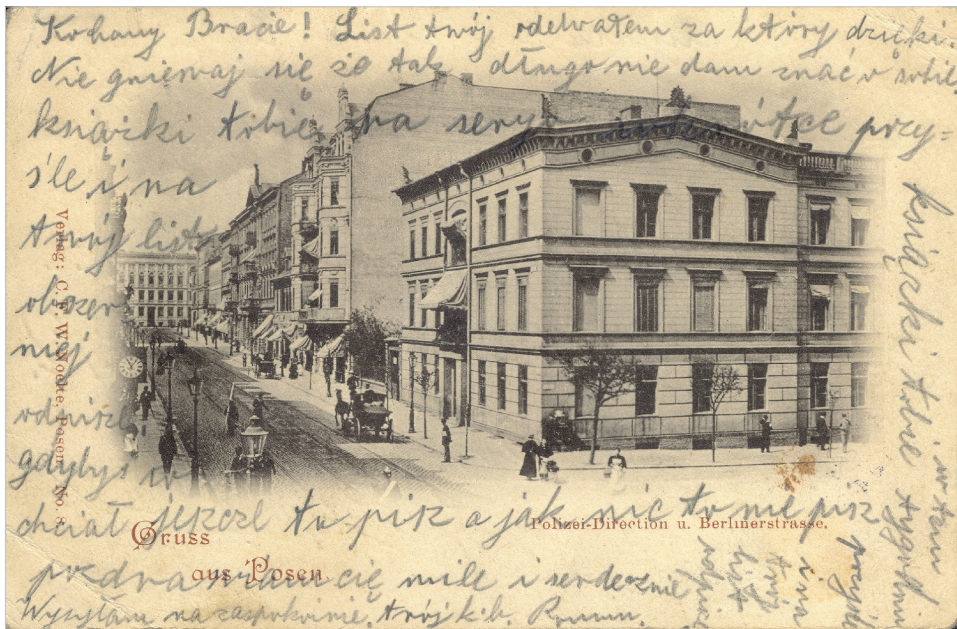 Kochany Bracie! List twój odebrałem za który dzięki.
Nie gniewaj się że tak długo nie dam znać o sobie
książki tobie na przy=
ślę i na
twój list
obszer
niej
odpiszę
gdybyś
chciał jeszcze tu pisz a jak nic to nie pisz
pozdrawiam cię mile i serdecznie
Wysyłam na zaspokojenie. twój k.b.
książki tobie
w tym tygodniu
przyślę
twój
list
Verlag: C. F. W. Nocke, Posen. No. 8.
Gruss
aus Posen
Polizei-Direction u. Berlinerstrasse.